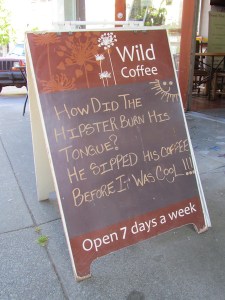 Wild
Coffee
How Did The
Hipster Burn His
Tongue?
He Sipped His Coffee
Before It Was Cool!!!
Open 7 days a week